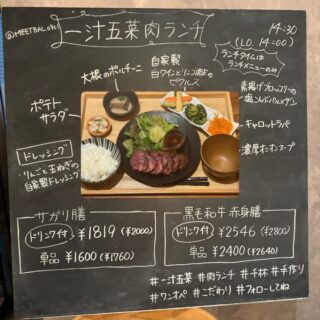 一汁五菜肉ランチ
14:30
(L.O. 14:00)
ランチタイムは
ランチメニューのみ
大根のポルチーニ
自家製
白ワインとリンゴ酢の
ピクルス
素揚げブロッコリーの
塩こんぶ
ポテト
サラダ
キャロットラペ
濃厚オニオンスープ
ドレッシング
・りんごと玉ねぎの
自家製ドレッシング
サガリ膳
ドリンク付 ¥1819 (¥2000)
単品 ¥1600 (¥1760)
黒毛和牛 赤身膳
ドリンク付 ¥2546 (¥2800)
単品 ¥2400 (¥2640)
#一汁五菜 #肉ランチ #千林 #手作り
#ワンオペ #こだわり #フォローしてね